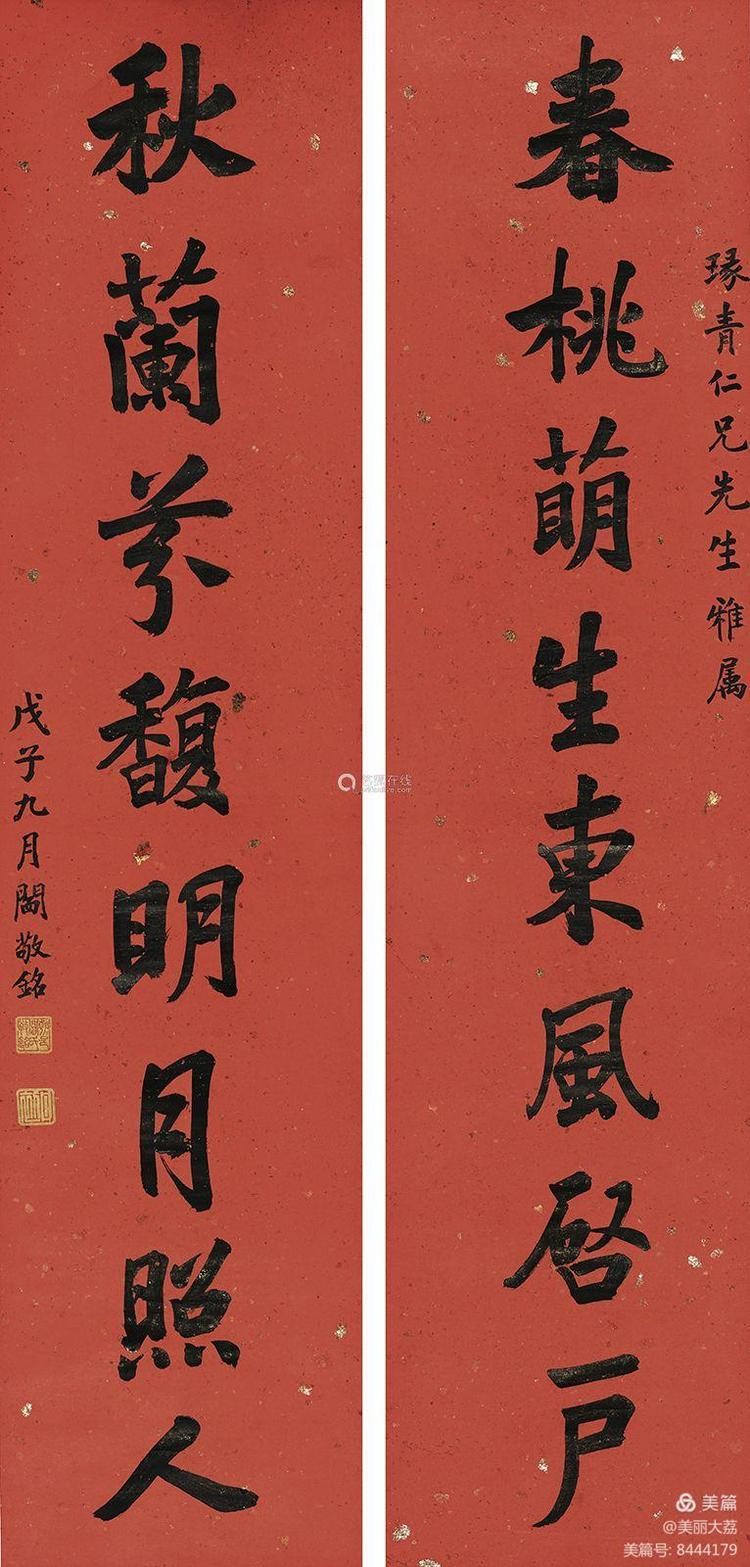 琢青仁兄先生雅属
春桃萌生東風啓戶
秋蘭芬馥明月照人
戊子九月閻敬銘
美篇
@美丽大荔
美篇号: 8444179